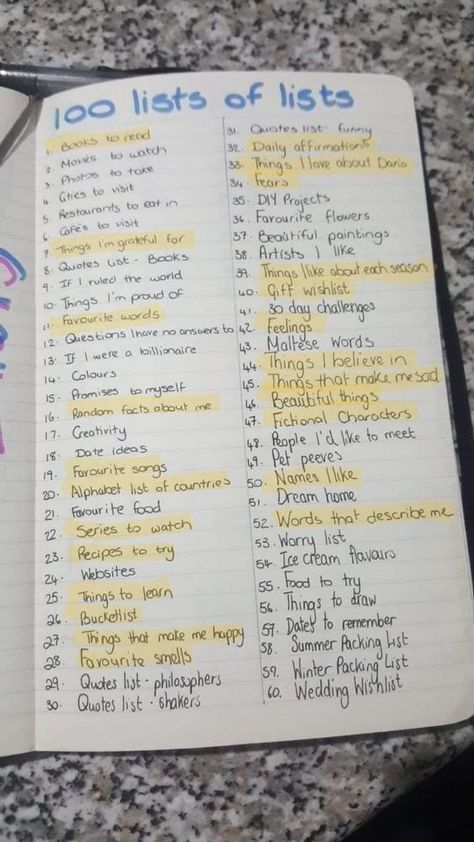 100 lists of lists
1. Books to read
2. Movies to watch
3. Photos to take
4. Cities to visit
5. Restaurants to eat in
6. Cafés to visit
7. Things I'm grateful for
8. Quotes List - Books
9. If I ruled the world
10. Things I'm proud of
11. Favourite words
12. Questions I have no answers to
13. If I were a billionaire
14. Colours
15. Promises to myself
16. Random facts about me
17. Creativity
18. Date ideas
19. Favourite songs
20. Alphabet list of countries
21. Favourite food
22. Series to watch
23. Recipes to try
24. Websites
25. Things to learn
26. Bucketlist
27. Things that make me happy
28. Favourite smells
29. Quotes list - philosophers
30. Quotes list -
31. Quotes list funny
32. Daily affirmations
33. Things I love about Dario
34. Fears
35. DIY Projects
36. Favourite flowers
37. Beautiful paintings
38. Artists I like
39. Things I like about each season
40. Gift wishlist
41. 30 day challenges
42. Feelings
43. Maltese words
44. Things I believe in
45. Things that make me sad
46. Beautiful things
47. Fictional Characters
48. People I'd like to meet
49. Pet peeves
50. Names I like
51. Dream home
52. Words that describe me
53. Worry list
54. Ice cream flavours
55. Food to try
56. Things to draw
57. Dates to remember
58. Summer Packing List
59. Winter Packing List
60. Wedding Wishlist